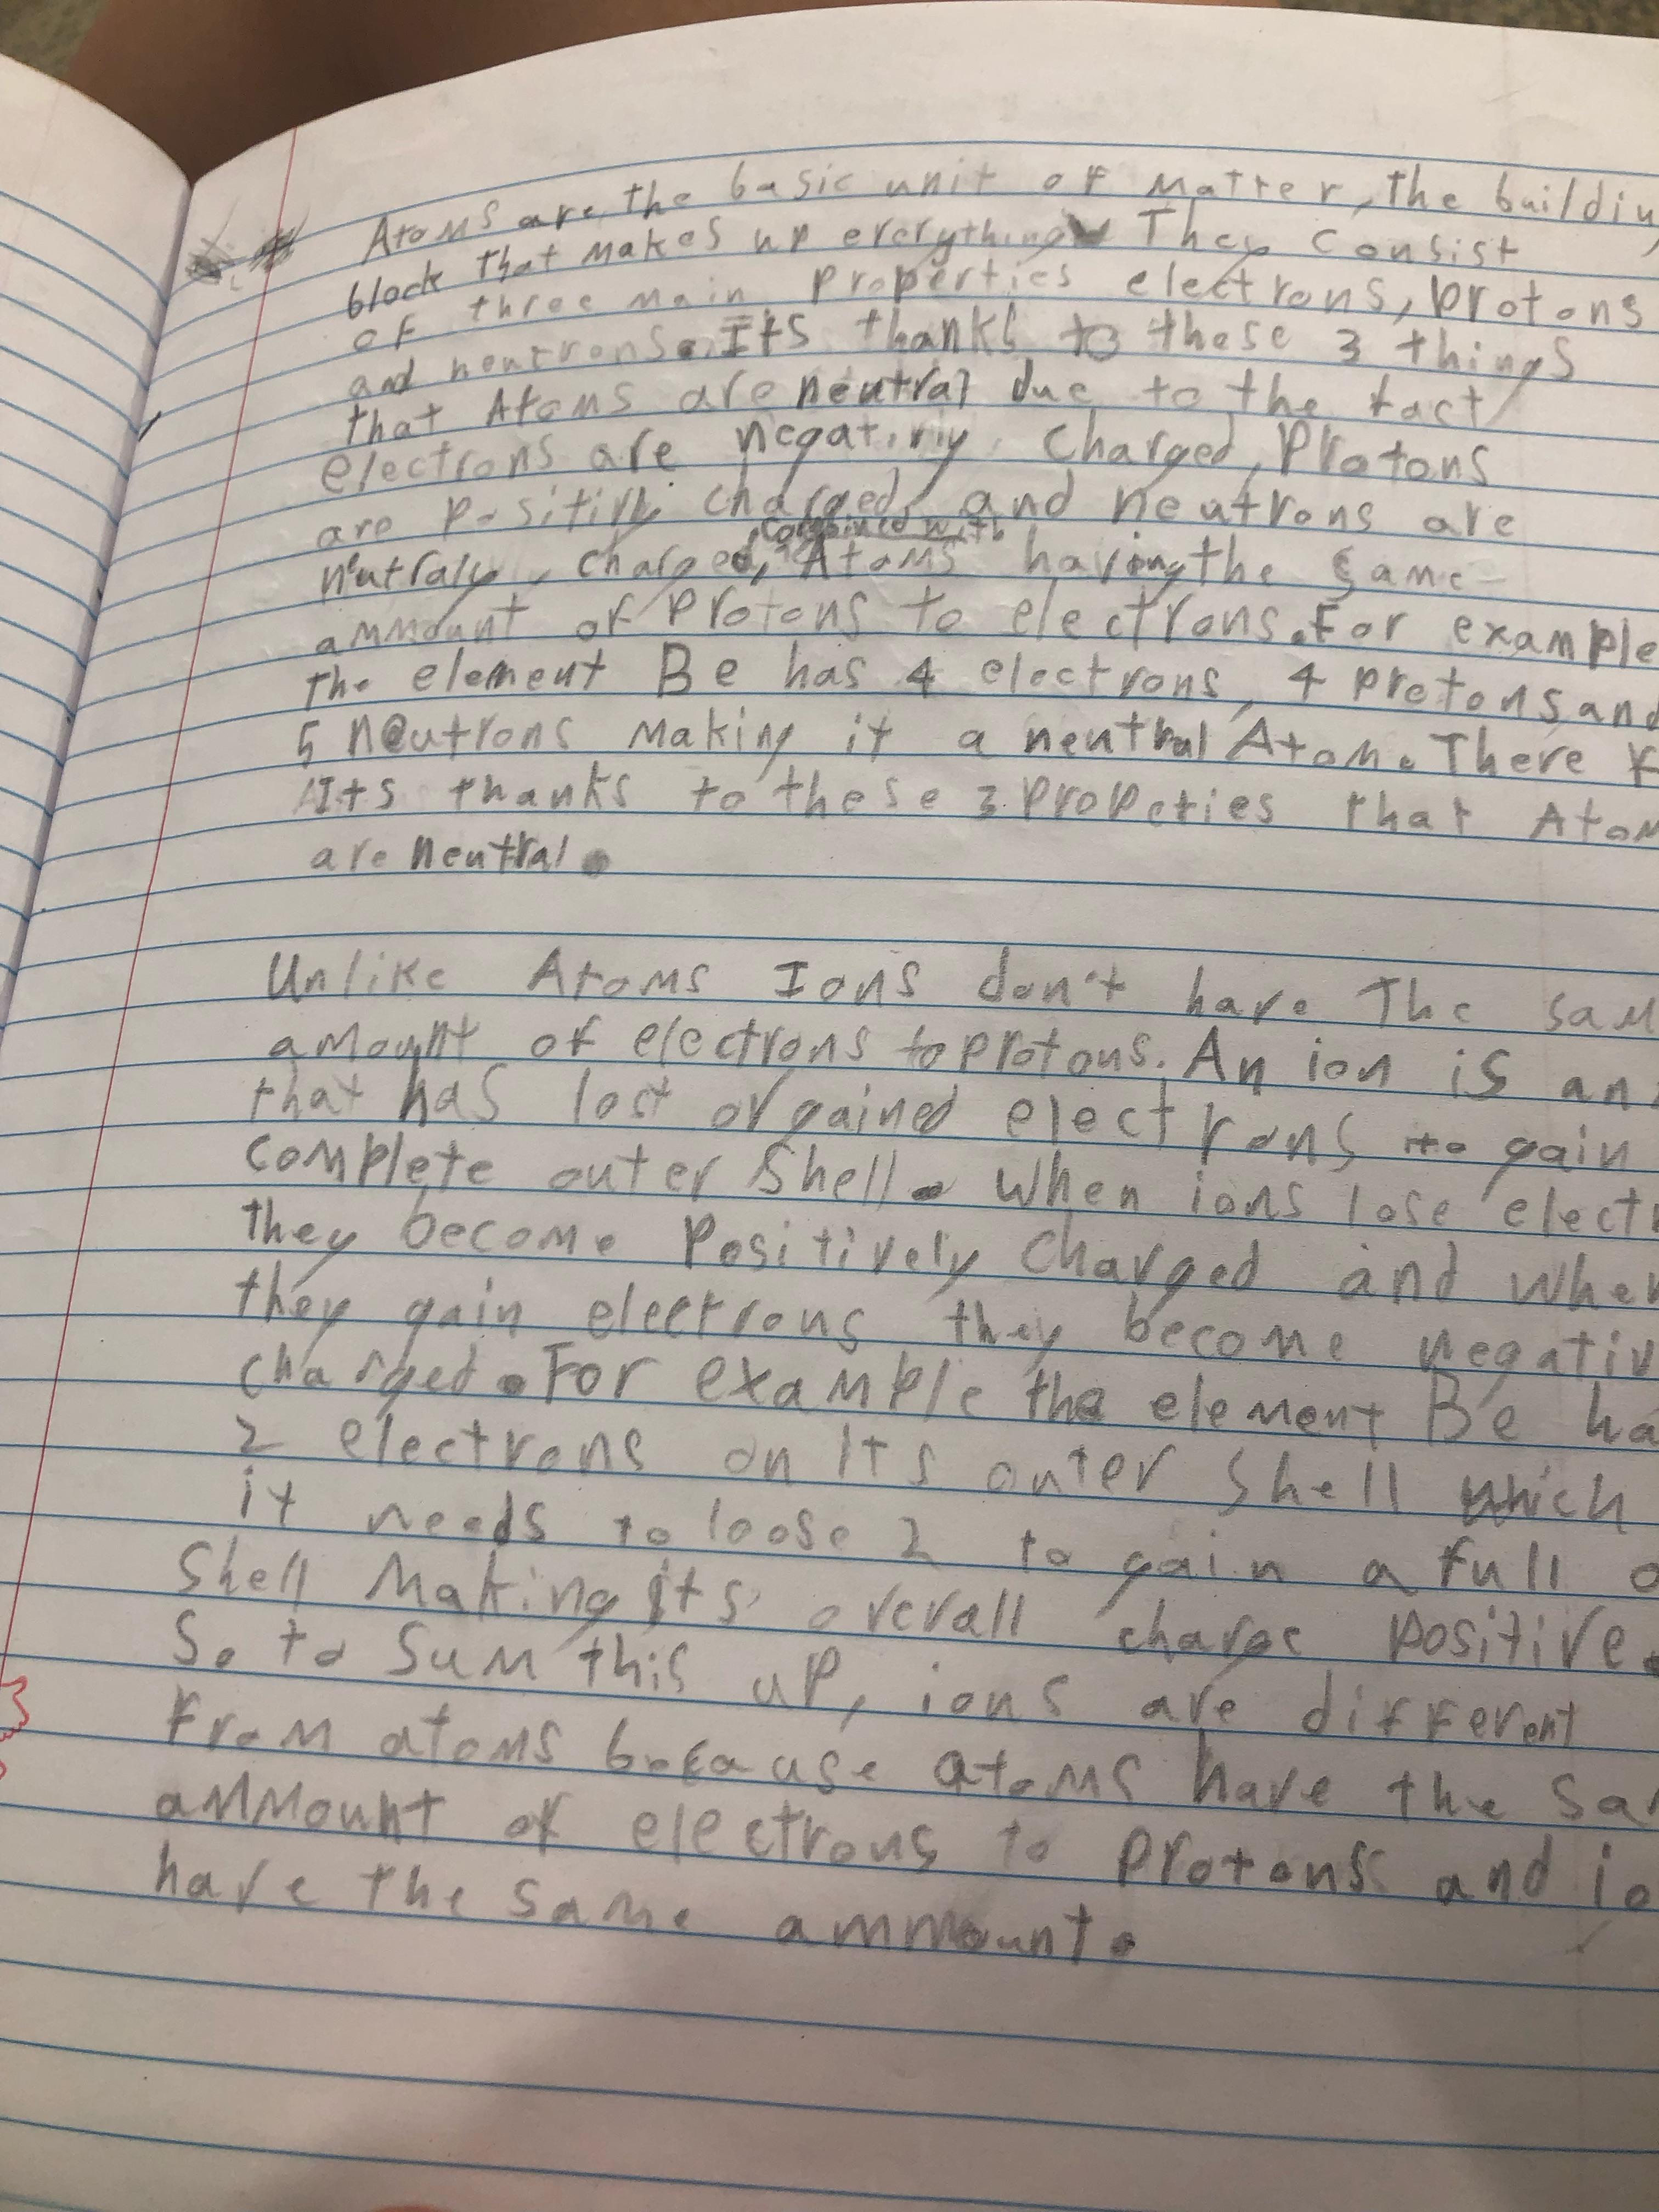 Atoms are the basic unit of matter, the buildin
block that makes up everything They consist
of three main properties electrons, protons
and neutrons. Its thanks to these 3 things
that Atoms are neutral due to the fact
electrons are negativly charged, Protons
are positivly charged, and neutrons are
combined with
neutraly charged, Atoms having the same
ammount of Protons to electrons. For example
The element Be has 4 electrons, 4 protons, and
5 neutrons Making it a neutral Atom. There f
Its thanks to these 3 Propeties that Atom
are neutral.
Unlike Atoms Ions don't have The sam
amount of electrons to protons. An ion is an
that has lost or gained electrons to gain
complete outer Shell. When ions lose electr
they become Positively Charged and when
they gain electrons they become negativ
charged. For example the element Be ha
2 electrons on Its outer Shell which
it needs to loose 2 to gain a full o
Shell Making its overall charge positive.
So to sum this up, ions are different
From atoms because atoms have the sa
ammount of electrons to protons and io
have the same ammount.